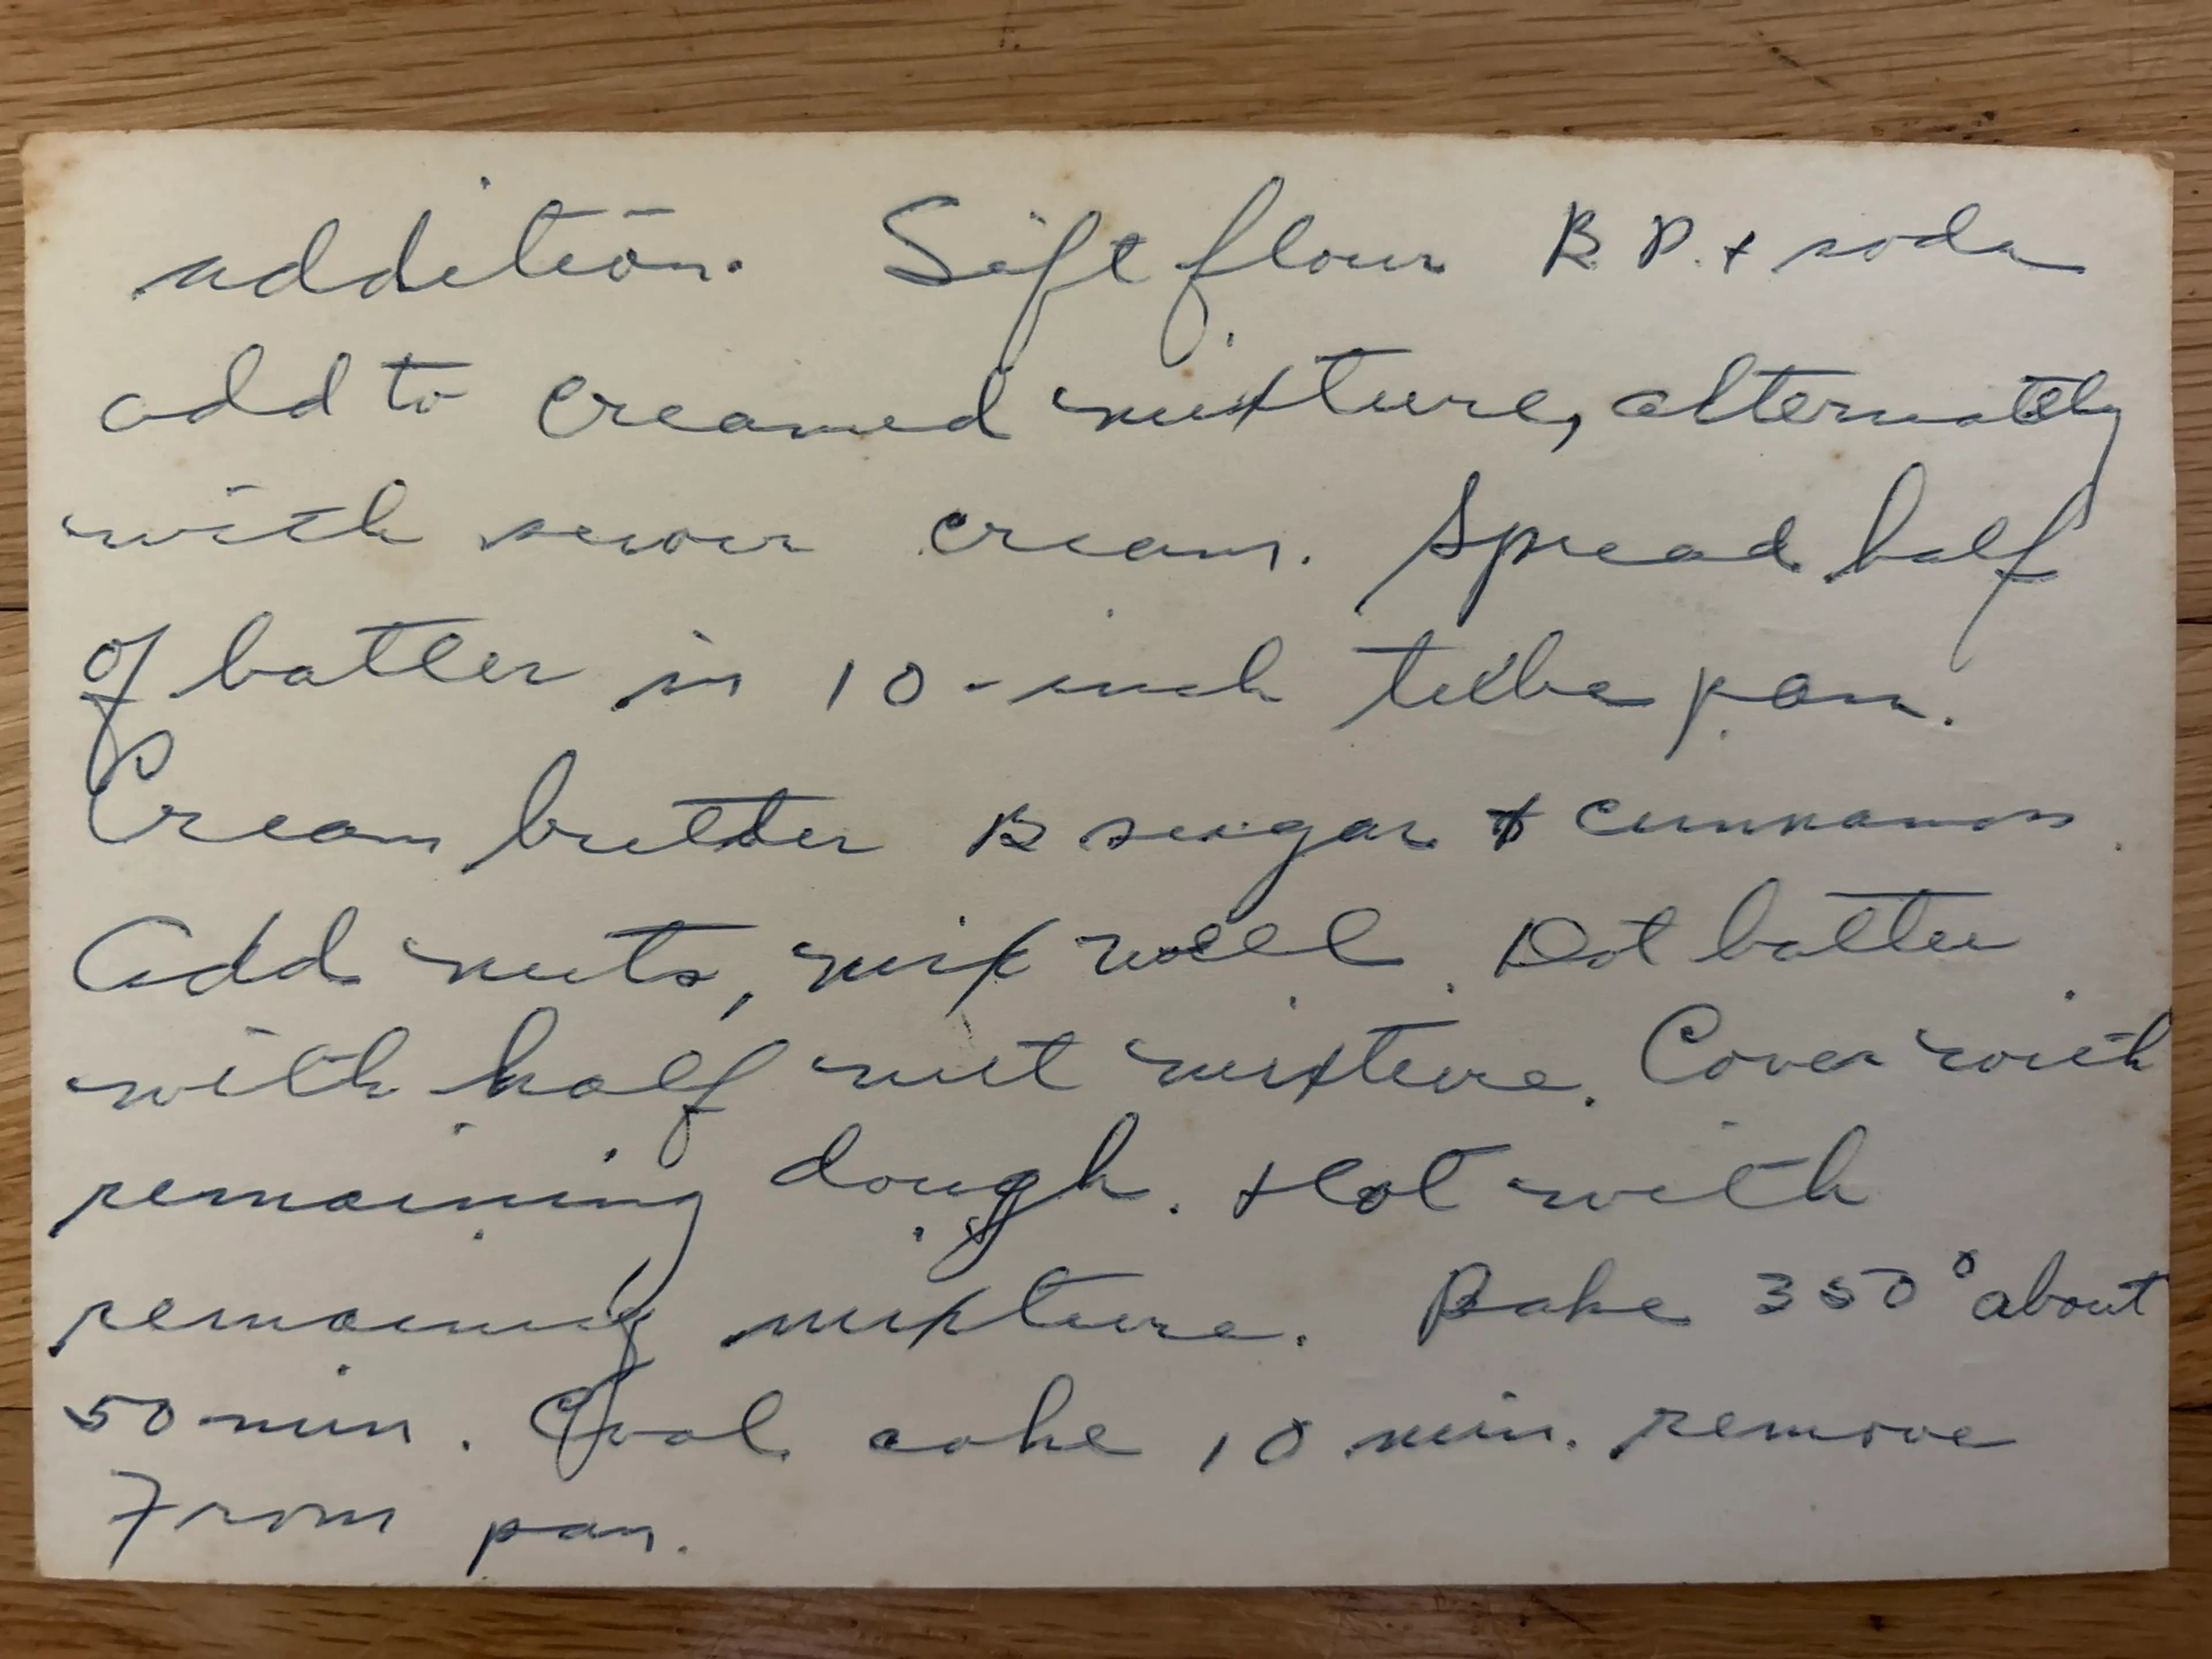 addition. Sift flour B.P. + soda
add to creamed mixture, alternately
with sour cream. Spread half
of batter in 10-inch tube pan.
Cream butter B sugar & cinnamon.
Add nuts, mix well. Dot batter
with half nut mixture. Cover with
remaining dough. + dot with
remaining mixture. Bake 350° about
50 min. Cool cake 10 min. remove
from pan.